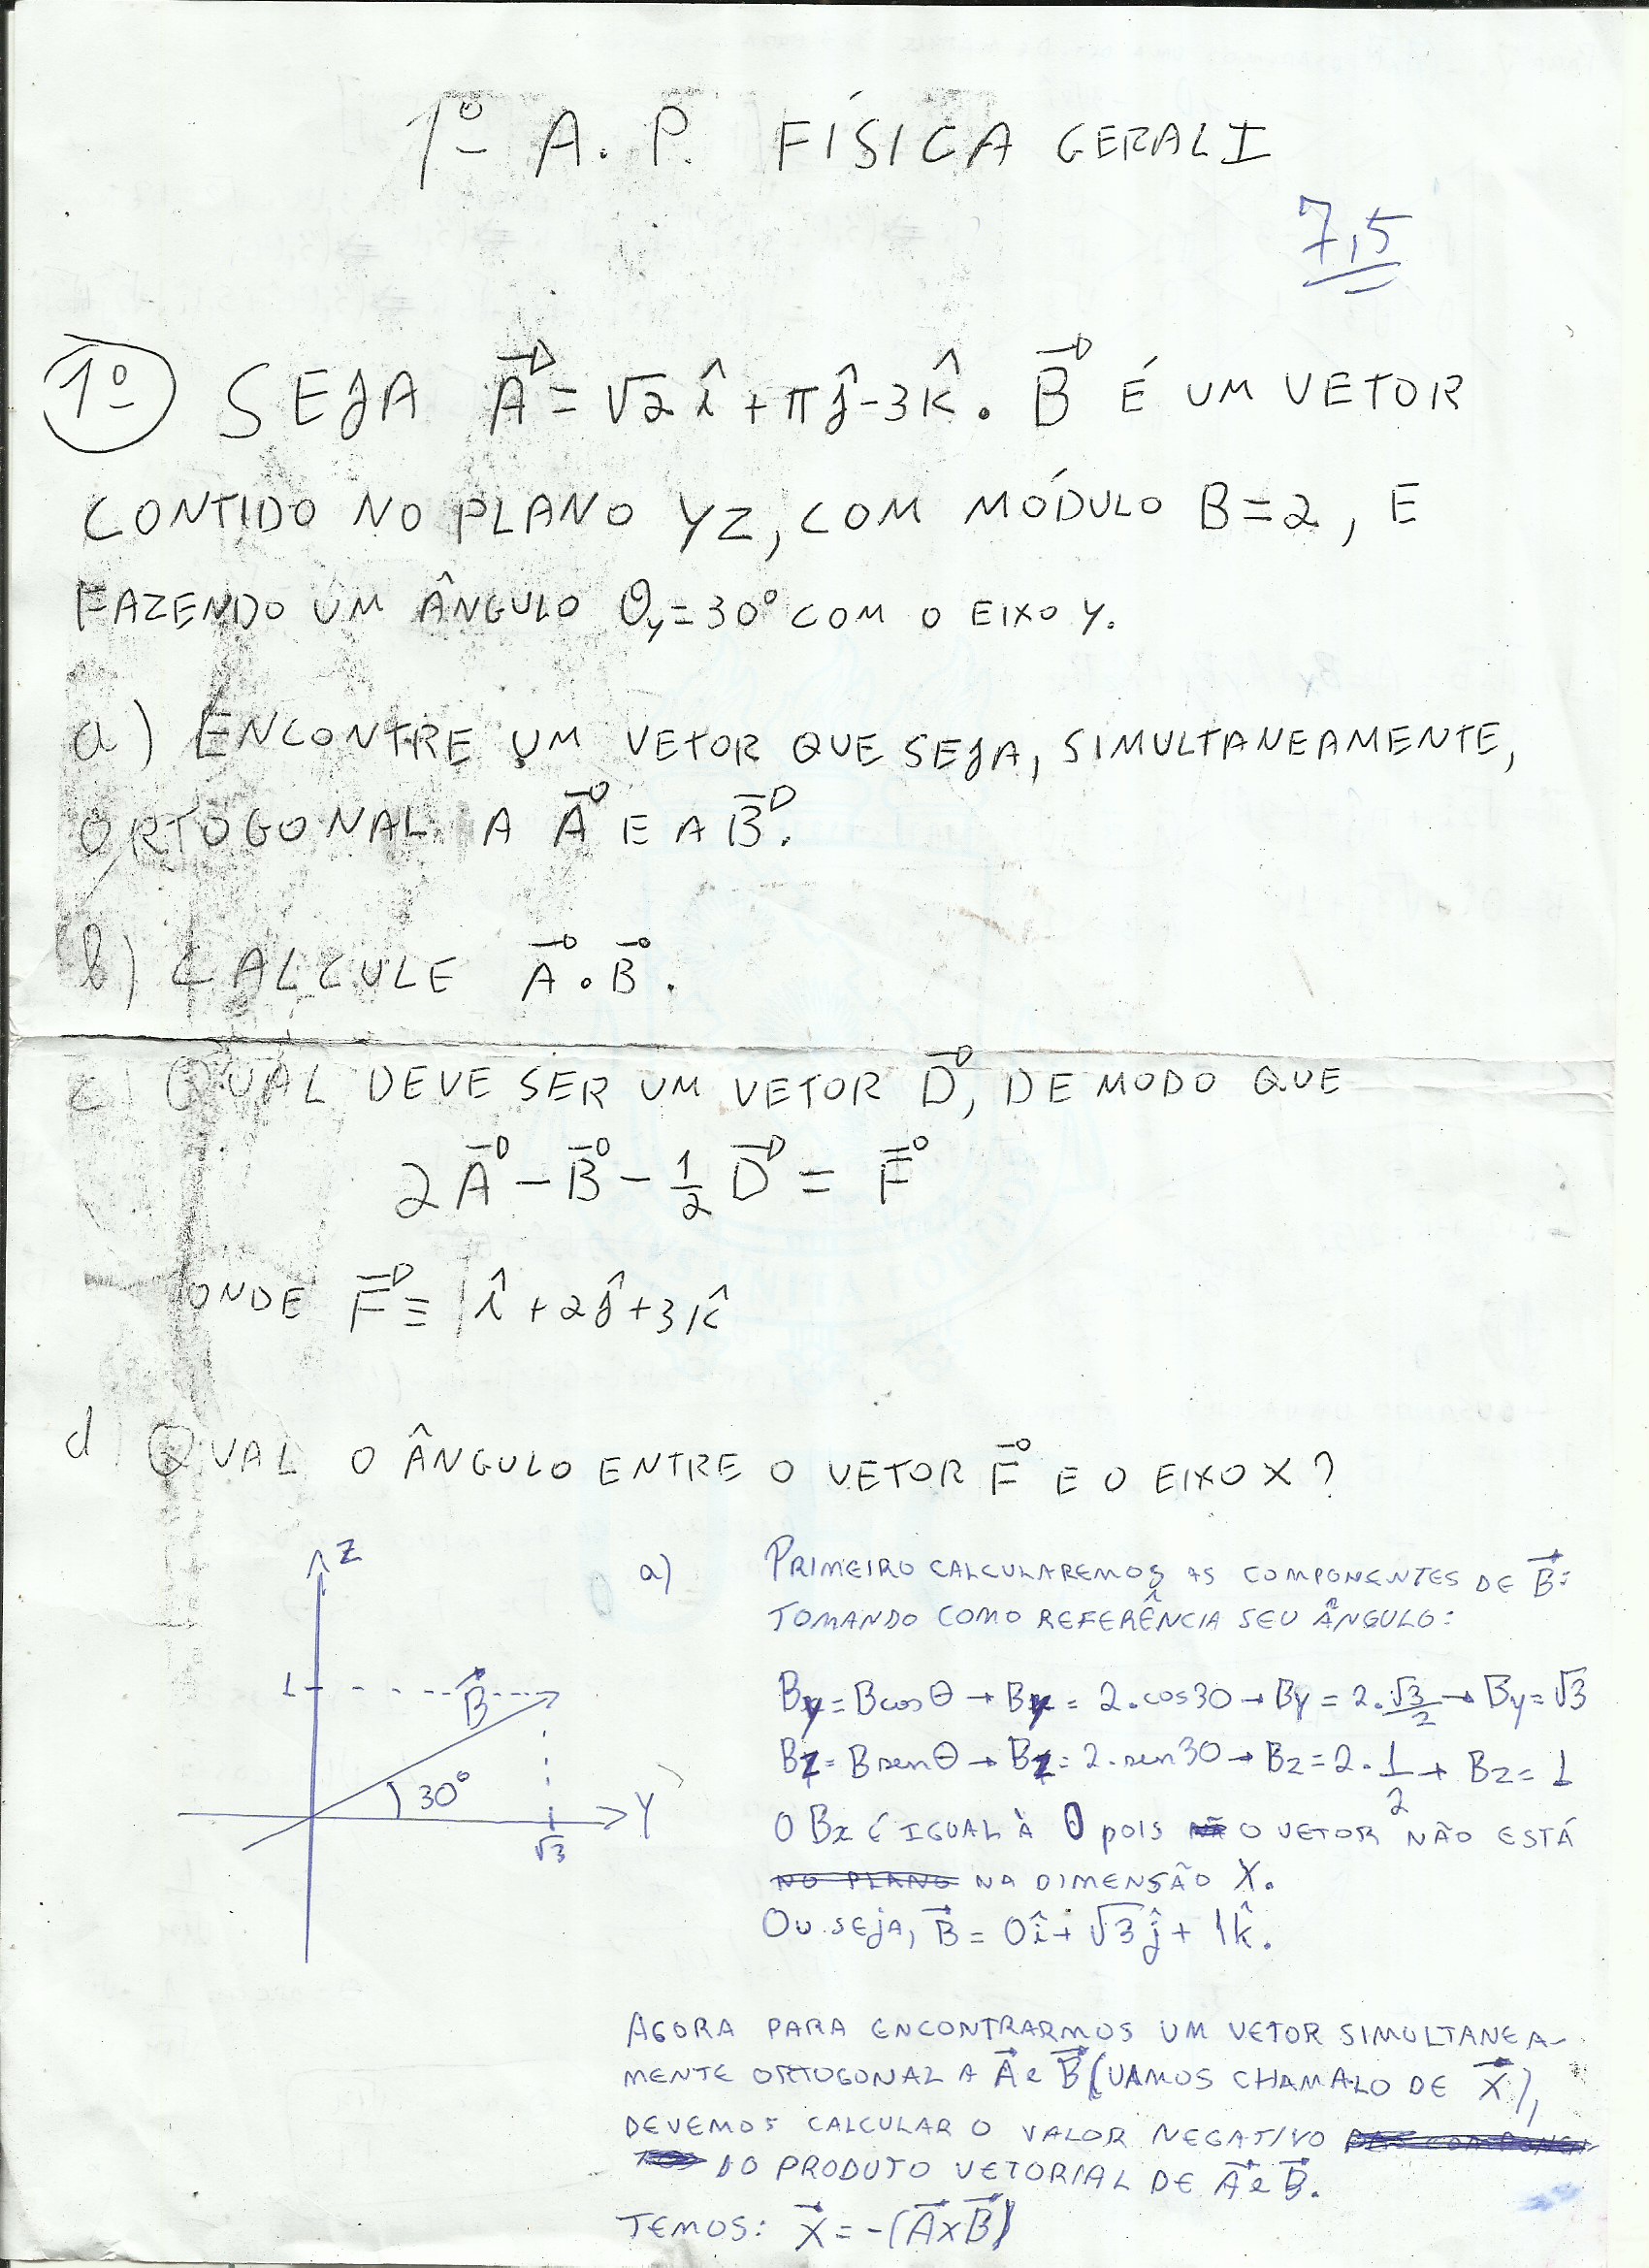 1º A. P. FÍSICA GERAL I
7,5
1º SEJA A⃗ = √2 î + π ĵ - 3 k̂. B⃗ É UM VETOR
CONTIDO NO PLANO YZ, COM MÓDULO B = 2, E
FAZENDO UM ÂNGULO θy = 30° COM O EIXO Y.
a) ENCONTRE UM VETOR QUE SEJA, SIMULTANEAMENTE,
ORTOGONAL A A⃗ E A B⃗.
b) CALCULE A⃗ . B⃗.
c) QUAL DEVE SER UM VETOR D⃗, DE MODO QUE
2A⃗ - B⃗ - 1/2 D⃗ = F⃗
ONDE F⃗ ≡ 1î + 2ĵ + 3k̂
d) QUAL O ÂNGULO ENTRE O VETOR F⃗ E O EIXO X?
Z
1
B⃗
30°
Y
√3
a) PRIMEIRO CALCULAREMOS AS COMPONENTES DE B⃗:
TOMANDO COMO REFERÊNCIA SEU ÂNGULO:
By = B cos θ → By = 2.cos30 → By = 2.√3/2 → By = √3
Bz = B sen θ → Bz = 2.sen30 → Bz = 2.1/2 → Bz = 1
O Bx É IGUAL À 0 pois O VETOR NÃO ESTÁ
NO PLANO NA DIMENSÃO X.
OU SEJA, B⃗ = 0î + √3ĵ + 1k̂.
AGORA PARA ENCONTRARMOS UM VETOR SIMULTANEA-
MENTE ORTOGONAL A A⃗ e B⃗ (VAMOS CHAMALO DE X⃗),
DEVEMOS CALCULAR O VALOR NEGATIVO
DO PRODUTO VETORIAL DE A⃗ e B⃗.
TEMOS: X⃗ = -(A⃗xB⃗)